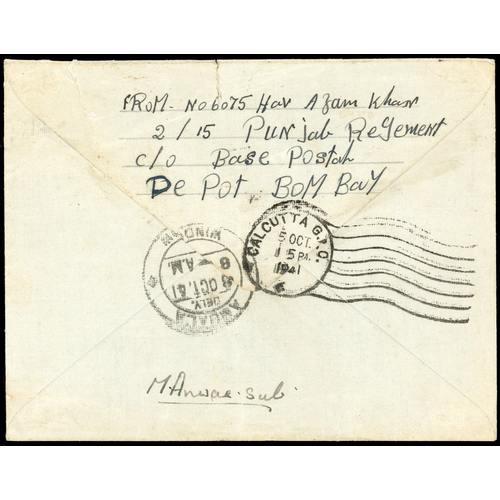 FROM - No 6075 Hav Azam Khan
2/15 Punjab Regement
C/o Base Postal
DePot, BOMBaY
CALCUTTA G.P.O.
5 OCT.
15 PM.
1941
WINDOW
8 A.M.
8 OCT. 41
DELY.
AMBALA
M. Anwar. Sub